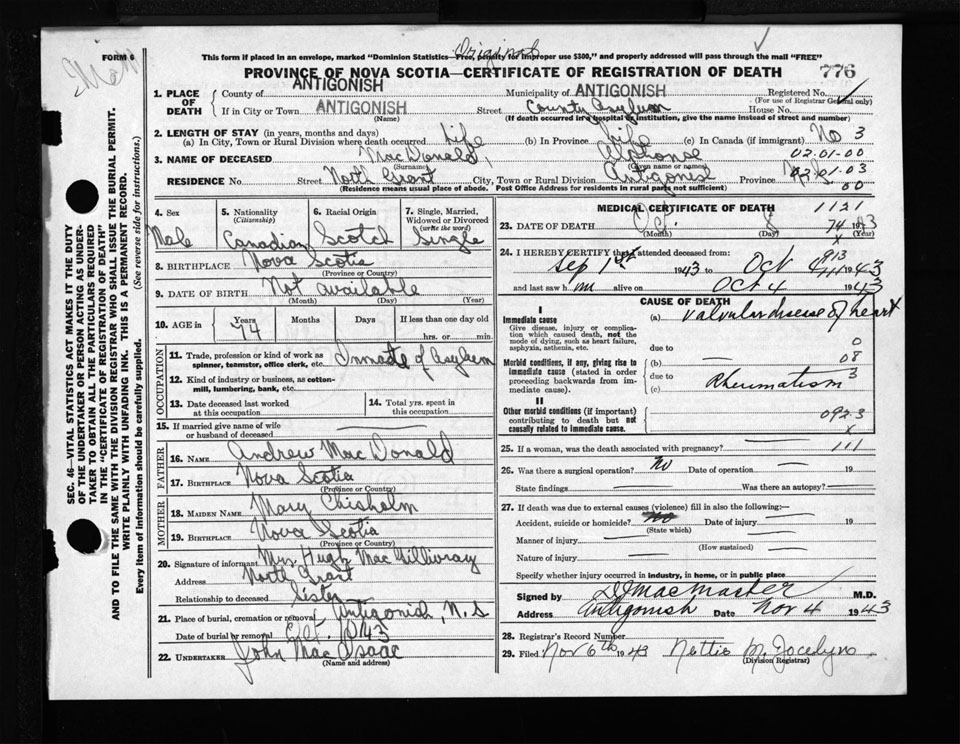 FORM 6
Original
This form if placed in an envelope, marked "Dominion Statistics—Free, penalty for improper use $300," and properly addressed will pass through the mail "FREE"
PROVINCE OF NOVA SCOTIA—CERTIFICATE OF REGISTRATION OF DEATH 776
1. PLACE OF DEATH County of ANTIGONISH Municipality of ANTIGONISH Registered No. 1
(For use of Registrar General only)
If in City or Town ANTIGONISH Street County Asylum House No.
(Name) (If death occurred in a hospital or institution, give the name instead of street and number)
2. LENGTH OF STAY (in years, months and days)
(a) In City, Town or Rural Division where death occurred Life (b) In Province Life (c) In Canada (if immigrant) No 3
3. NAME OF DECEASED MacDonald, Alphonse 02-01-00
(Surname) (Given name or names)
RESIDENCE No. Street North Grant City, Town or Rural Division Antigonish Province N.S. 03
(Residence means usual place of abode. Post Office Address for residents in rural parts not sufficient) 00
4. Sex Male
5. Nationality (Citizenship) Canadian
6. Racial Origin Scotch
7. Single, Married, Widowed or Divorced (write the word) Single
8. BIRTHPLACE Nova Scotia
(Province or Country)
9. DATE OF BIRTH Not available
(Month) (Day) (Year)
10. AGE in Years 74 Months Days If less than one day old
hrs. or min.
OCCUPATION
11. Trade, profession or kind of work as spinner, teamster, office clerk, etc. Inmate of Asylum
12. Kind of industry or business, as cotton-mill, lumbering, bank, etc.
13. Date deceased last worked at this occupation
14. Total yrs. spent in this occupation
15. If married give name of wife or husband of deceased
FATHER
16. NAME Andrew MacDonald
17. BIRTHPLACE Nova Scotia
(Province or Country)
MOTHER
18. MAIDEN NAME Mary Chisholm
19. BIRTHPLACE Nova Scotia
(Province or Country)
20. Signature of informant Mrs. Hugh MacGillivray
Address North Grant
Relationship to deceased Sister
21. Place of burial, cremation or removal Antigonish, N.S
Date of burial or removal Oct. 1943
22. UNDERTAKER John MacIsaac
(Name and address)
MEDICAL CERTIFICATE OF DEATH 1121
23. DATE OF DEATH Oct. 74 43
(Month) (Day) (Year)
24. I HEREBY CERTIFY that I attended deceased from:
Sep 1st 1943 to Oct 4 1943
and last saw him alive on Oct 4 1943
CAUSE OF DEATH
I
Immediate cause (a) Valvular disease of heart
Give disease, injury or complication which caused death, not the mode of dying, such as heart failure, asphyxia, asthenia, etc.
due to 0
Morbid conditions, if any, giving rise to immediate cause (stated in order proceeding backwards from immediate cause).
(b) 08
due to 3
(c) Rheumatism
II
Other morbid conditions (if important) contributing to death but not causally related to immediate cause.
0923
x
25. If a woman, was the death associated with pregnancy? 111
26. Was there a surgical operation? No Date of operation 19
State findings Was there an autopsy?
27. If death was due to external causes (violence) fill in also the following:—
Accident, suicide or homicide? No Date of injury 19
(State which)
Manner of injury
(How sustained)
Nature of injury
Specify whether injury occurred in industry, in home, or in public place
Signed by MacMaster M.D.
Address Antigonish Date Nov 4 1943
28. Registrar's Record Number
29. Filed Nov 6th 1943 Nettie M. Jocelyn
(Division Registrar)
SEC. 46—VITAL STATISTICS ACT MAKES IT THE DUTY
OF THE UNDERTAKER OR PERSON ACTING AS UNDERTAKER TO OBTAIN ALL THE PARTICULARS REQUIRED
IN THE "CERTIFICATE OF REGISTRATION OF DEATH"
AND TO FILE THE SAME WITH THE DIVISION REGISTRAR WHO SHALL ISSUE THE BURIAL PERMIT.
WRITE PLAINLY WITH UNFADING INK. THIS IS A PERMANENT RECORD.
Every item of information should be carefully supplied. (See reverse side for instructions.)